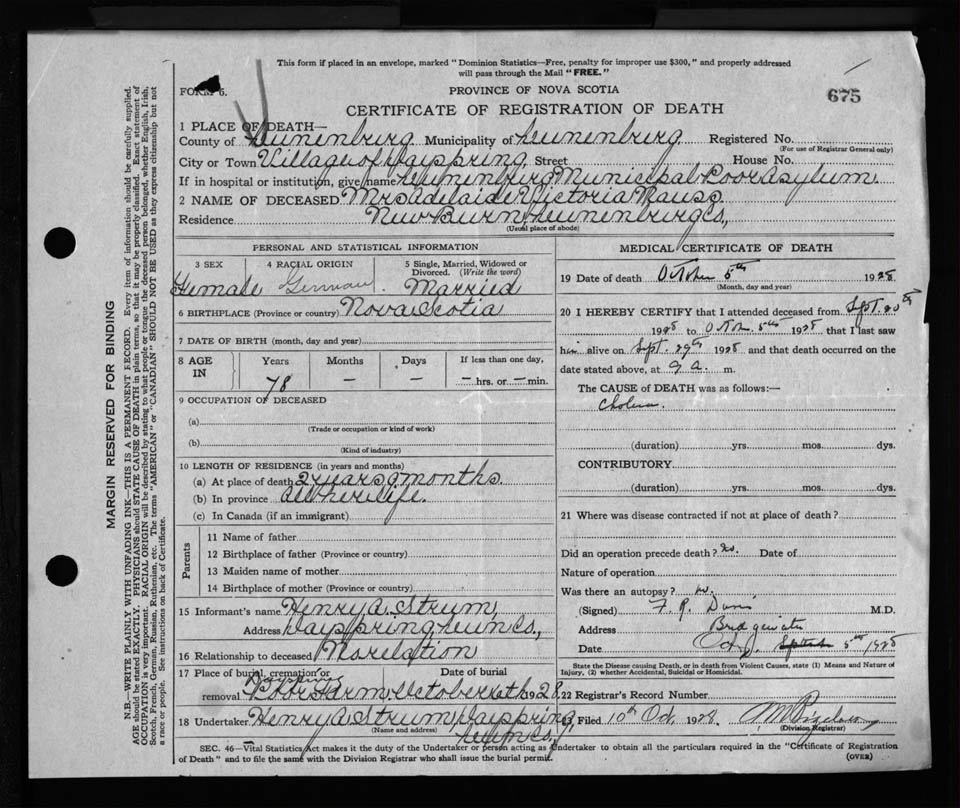 This form if placed in an envelope, marked "Dominion Statistics—Free, penalty for improper use $300," and properly addressed
will pass through the Mail "FREE."
FORM 6.
PROVINCE OF NOVA SCOTIA
675
CERTIFICATE OF REGISTRATION OF DEATH
1 PLACE OF DEATH—
County of Lunenburg Municipality of Lunenburg Registered No.
(For use of Registrar General only)
City or Town Village of Dayspring Street House No.
If in hospital or institution, give name Lunenburg Municipal Poor Asylum
2 NAME OF DECEASED Mrs Adelaide Victoria
Residence New Burn, Lunenburg Co,
(Usual place of abode)
PERSONAL AND STATISTICAL INFORMATION
3 SEX 4 RACIAL ORIGIN 5 Single, Married, Widowed or Divorced. (Write the word)
Female German Married
6 BIRTHPLACE (Province or country) Nova Scotia
7 DATE OF BIRTH (month, day and year)
8 AGE IN Years Months Days If less than one day,
78 — — — hrs. or — min.
9 OCCUPATION OF DECEASED
(a)
(Trade or occupation or kind of work)
(b)
(Kind of industry)
10 LENGTH OF RESIDENCE (in years and months)
(a) At place of death 2 years 9 months
(b) In province All her life.
(c) In Canada (if an immigrant)
Parents
11 Name of father
12 Birthplace of father (Province or country)
13 Maiden name of mother
14 Birthplace of mother (Province or country)
15 Informant's name Henry A Strum
Address Dayspring, Lun Co.,
16 Relationship to deceased No relation
17 Place of burial, cremation or Date of burial
Dayspring
removal Poor Farm October 28
18 Undertaker Henry A Strum, Dayspring
(Name and address) Lun Co,
MEDICAL CERTIFICATE OF DEATH
19 Date of death October 5th 1928
(Month, day and year)
20 I HEREBY CERTIFY that I attended deceased from Sept. 20th
1928 to Octo. 5th 1928 that I last saw
him alive on Sept. 29th 1928 and that death occurred on the
date stated above, at 9 a. m.
The CAUSE of DEATH was as follows:—
Cholera.
(duration) yrs. mos. dys.
CONTRIBUTORY
(duration) yrs. mos. dys.
21 Where was disease contracted if not at place of death?
Did an operation precede death? No. Date of
Nature of operation
Was there an autopsy? No.
(Signed) F. R. Davis M.D.
Address Bridgewater
Date Oct. 5th 1928
State the Disease causing Death, or in death from Violent Causes, state (1) Means and Nature of
Injury, (2) whether Accidental, Suicidal or Homicidal.
22 Registrar's Record Number
23 Filed 10th Oct 1928.
(Division Registrar)
SEC. 46—Vital Statistics Act makes it the duty of the Undertaker or person acting as Undertaker to obtain all the particulars required in the "Certificate of Registration
of Death" and to file the same with the Division Registrar who shall issue the burial permit.
(OVER)
MARGIN RESERVED FOR BINDING
N.B.—WRITE PLAINLY WITH UNFADING INK—THIS IS A PERMANENT RECORD. Every item of information should be carefully supplied.
AGE should be stated EXACTLY. PHYSICIANS should STATE CAUSE OF DEATH in plain terms, so that it may be properly classified. Exact statement of
OCCUPATION is very important. RACIAL ORIGIN will be described by stating to what people or tongue the deceased person belonged, whether English, Irish,
Scotch, French, German, Russian, Ruthenian, etc. The terms "AMERICAN" or "CANADIAN" SHOULD NOT BE USED as they express citizenship but not
a race or people. See instructions on back of Certificate.